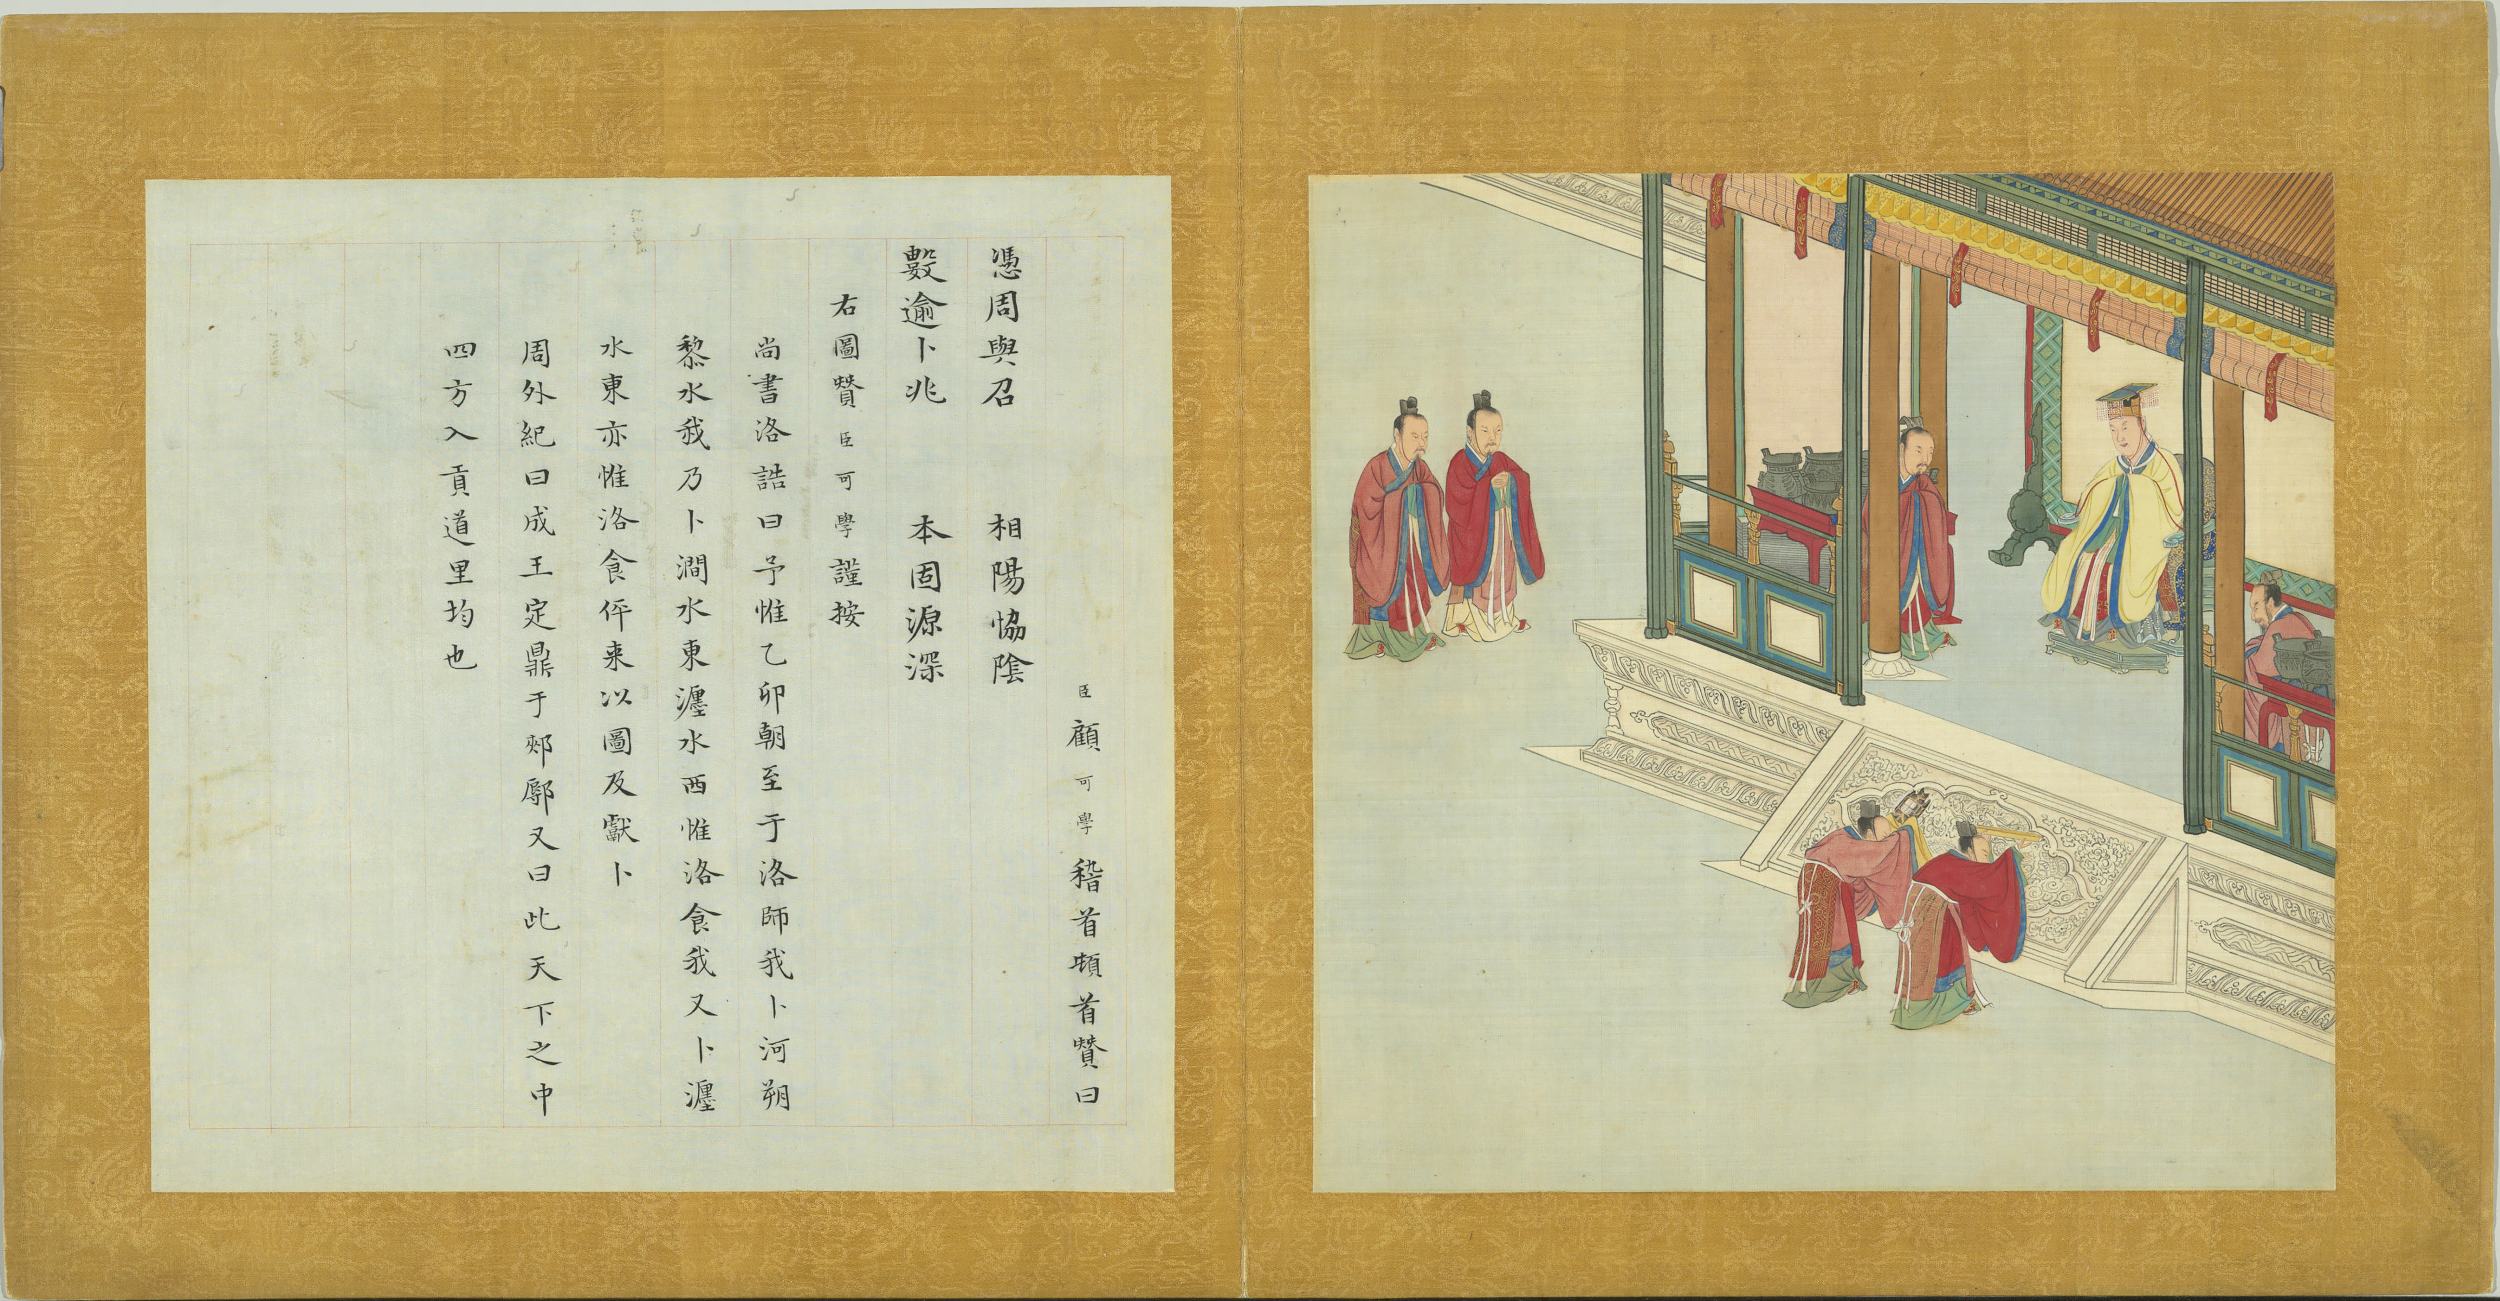 臣顧可學稽首頓首贊曰
憑周與召　相陽恊陰
數逾卜兆　本固源深
右圖贊臣可學謹按
尚書洛誥曰予惟乙卯朝至于洛師我卜河朔
黎水我乃卜澗水東瀍水西惟洛食我又卜瀍
水東亦惟洛食伻来以圖及獻卜
周外紀曰成王定鼎于郟鄏又曰此天下之中
四方入貢道里均也